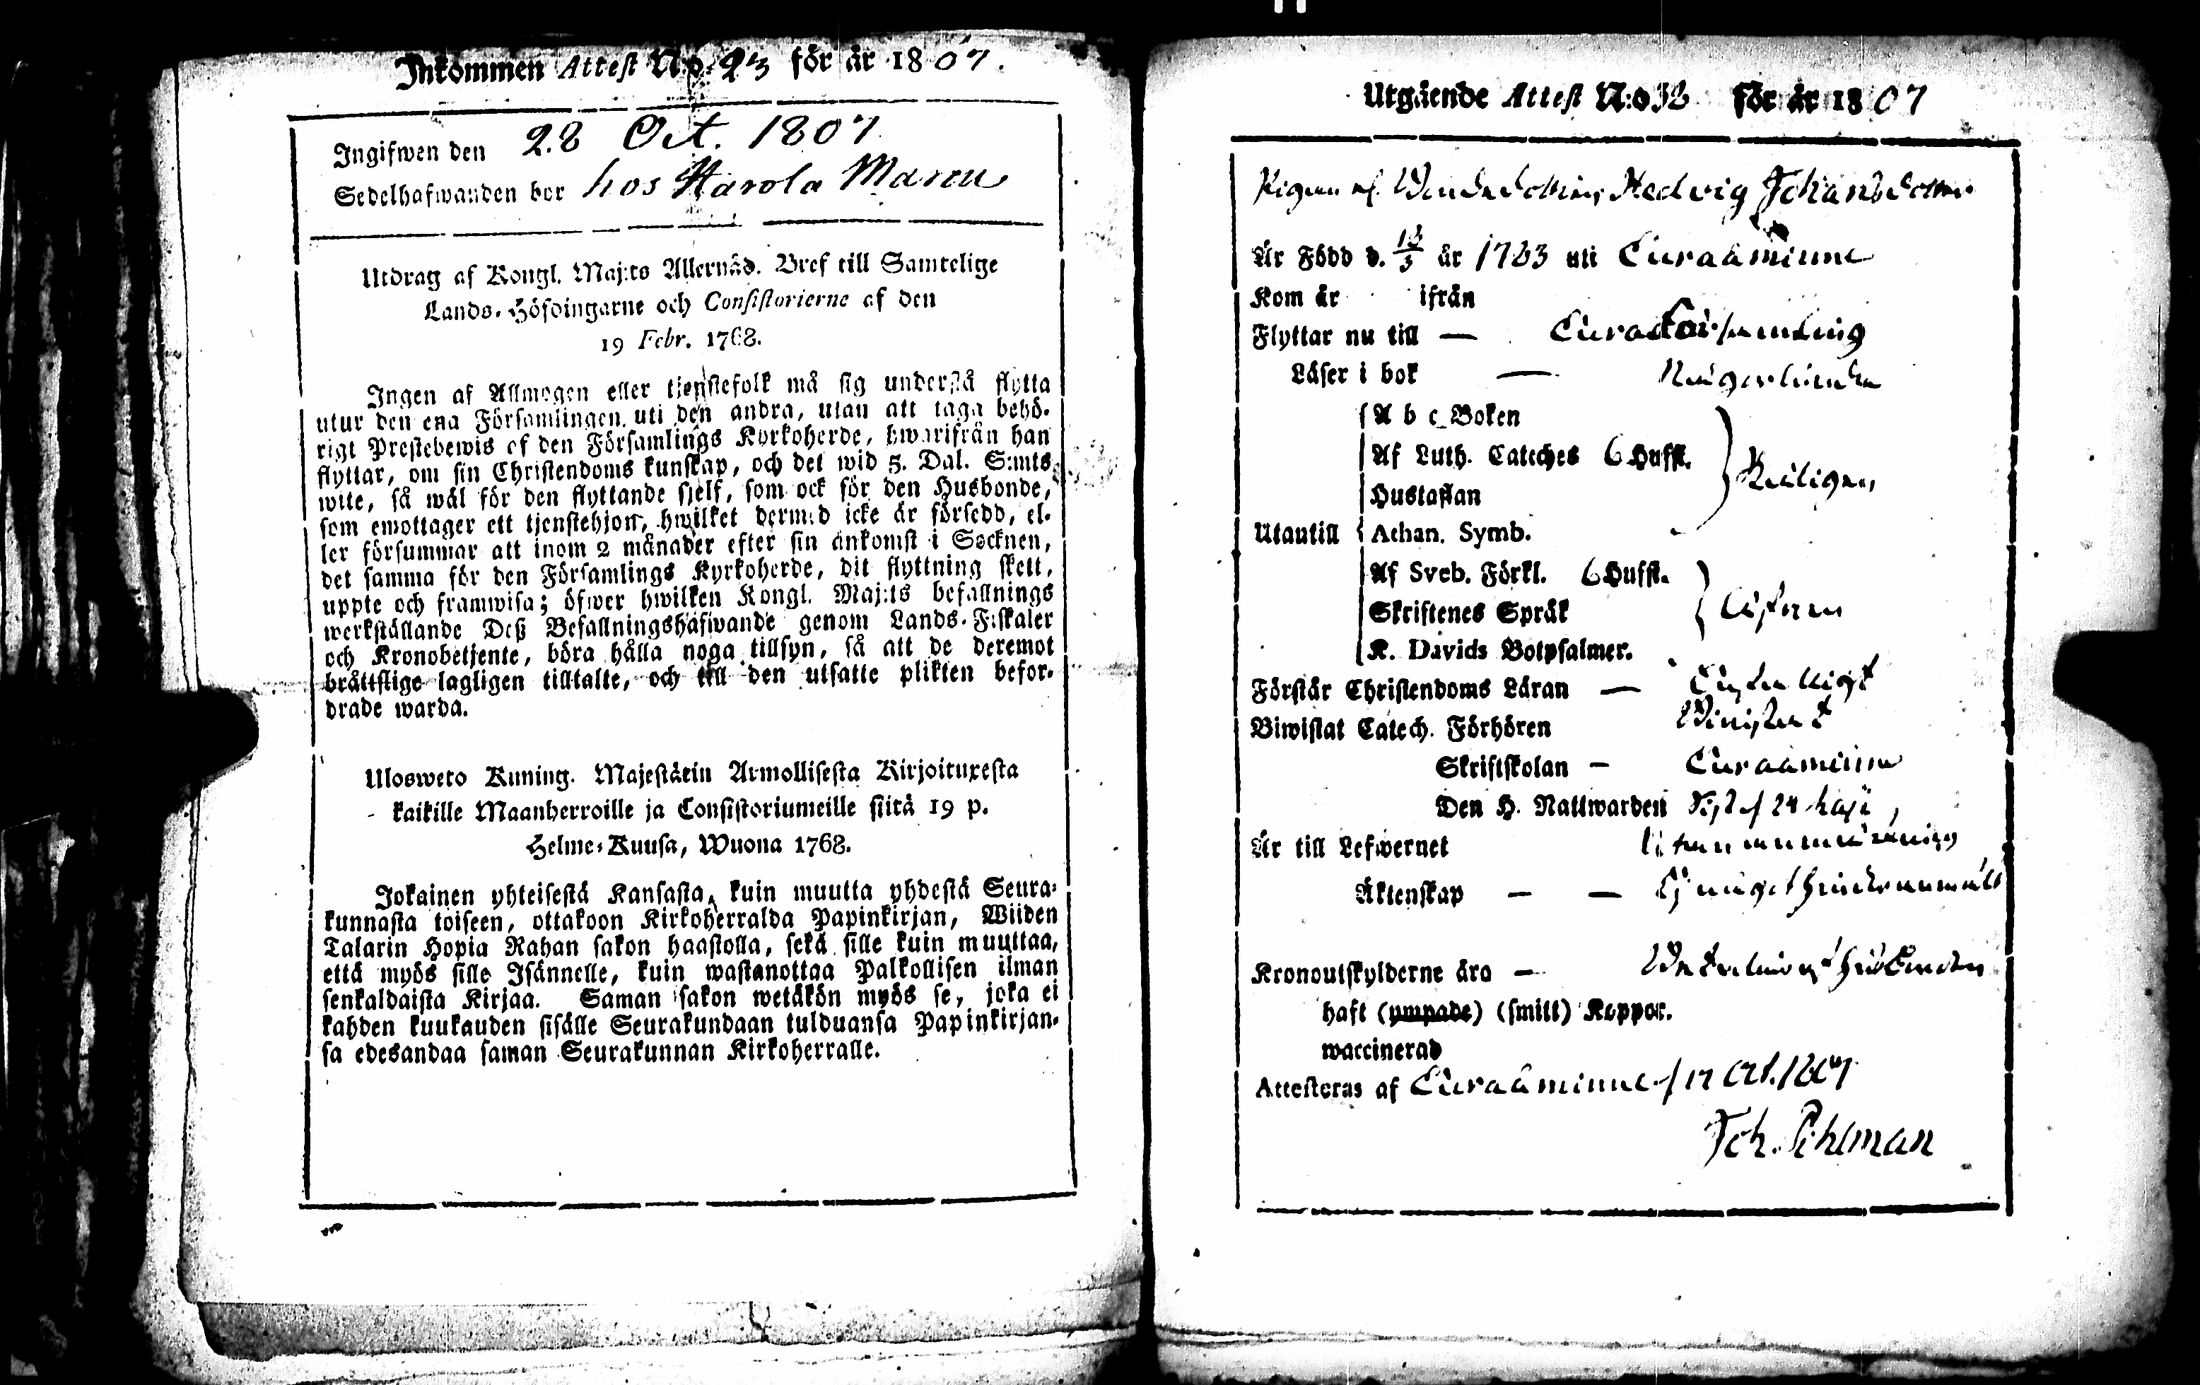 Inkommen Attest N:o 23 för år 1807.
Ingifwen den 28 Oct. 1807
Sedelhafwanden bor hos Harola Maren
Utdrag af Kongl. Maj:ts Allernåd. Bref till Samtelige
Lands-Höfdingarne och Consistorierne af den
19 Febr. 1768.
Ingen af Allmogen eller tjenstefolk må sig understå flytta
utur den ena Församlingen uti den andra, utan att taga behö-
rigt Prestebewis of den Församlings Kyrkoherde, hwarifrån han
flyttar, om sin Christendoms kunskap, och det wid 5. Dal. S:mts
wite, så wäl för den flyttande sjelf, som ock för den Husbonde,
som emottager ett tjenstehjon, hwilket dermed icke är försedd, el-
ler försummar att inom 2 månader efter sin ankomst i Socknen,
det samma för den Församlings Kyrkoherde, dit flyttning skett,
uppte och framwisa; öfwer hwilken Kongl. Maj:ts befallnings
werkställande Deß Befallningshafwande genom Lands-Fiskaler
och Kronobetjente, böra hålla noga tillsyn, så att de deremot
bråttslige lagligen tilltalte, och till den utsatte plikten befor-
drade warda.
Ulosweto Kuning. Majestätin Armollisesta Kirjoituxesta
kaikille Maanherroille ja Consistoriumeille siitä 19 p.
Helme-Kuusa, Wuona 1768.
Jokainen yhteisestä Kansasta, kuin muutta yhdestä Seura-
kunnasta toiseen, ottakoon Kirkoherralda Papinkirjan, Wiiden
Talarin Hopia Rahan sakon haastolla, sekä sille kuin muuttaa,
että myös sille Isännelle, kuin wastanottaa Palkollisen ilman
senkaldaista Kirjaa. Saman sakon wetäkön myös se, joka ei
kahden kuukauden sisälle Seurakundaan tulduansa Papinkirjan-
sa edesandaa saman Seurakunnan Kirkoherralle.
Utgående Attest N:o 38 för år 1807
Pigan Hedvig Johansdotter
Är Född d. år 1783 uti Euraåminne
Kom år ifrån
Flyttar nu till — Eura församling
Läser i bok —
A b c Boken
Af Luth. Cateches 6 Hufst.
Hustaflan
Utantill Athan. Symb.
Af Sveb. Förkl. 6 Hufst.
Skriftenes Språk
K. Davids Botpsalmer.
Förstår Christendoms Läran —
Biwistat Catech. Förhören
Skriftskolan — Euraåminne
Den H. Nattwarden
Är till Lefwernet
Äktenskap — —
Kronoutskylderne äro —
haft (ympade) (smitt) Koppor.
waccinerad
Attesteras af Euraåminne d 17 Oct. 1807
Joh. Pihlman